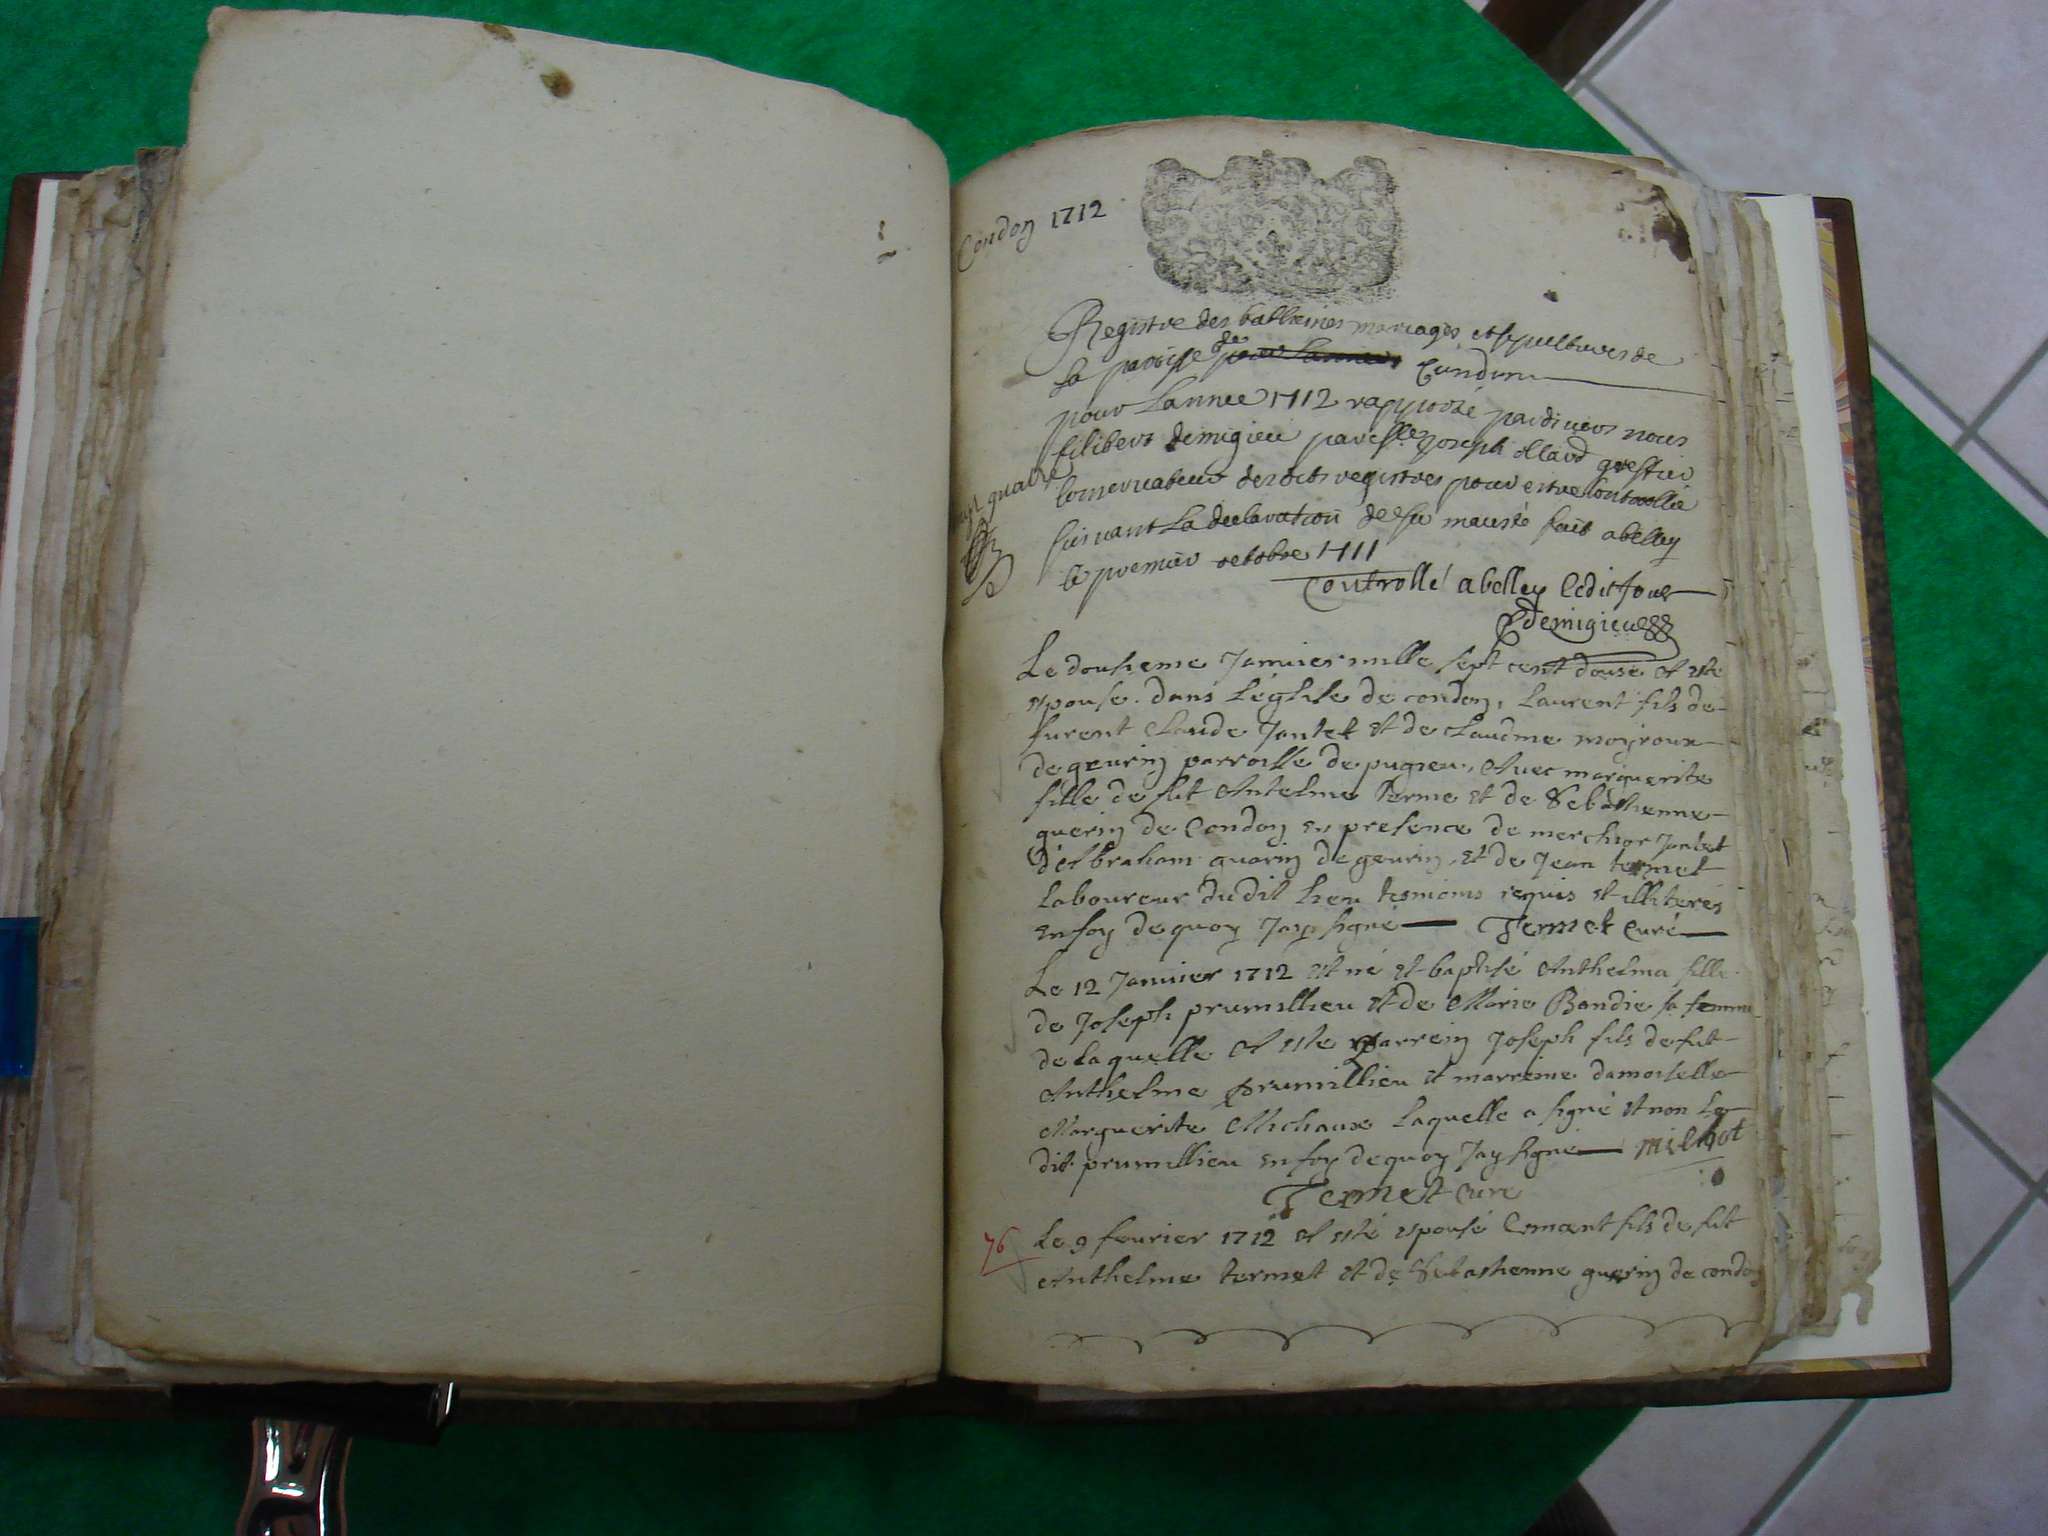 Condon 1712
Registre des bathemes mariages et sepultures de
la paroisse de pour lannee Condon
pour Lannee 1712 rapporté pardivers nous
filibert demigieu par messire Joseph allard greffier
Conservateur desdits registres pour estre Controollé
suivant La declaration de sa maiesté fait abelley
le premier octobre 1711
quatre
Controllé abelley ledit Jour
demigieu
Le dousieme Janvier mille sept cent douse at esté
epousé dans Léglise de condon, Laurent fils de
furent Claude Jantet et de claudine moyroux
de geurin parroisse de pugieu, Avec marguerite
fille de fut Antelme Terme et de Sebastienne
guerin de Condon en presence de merchior Jantet
d'Abraham guarin de geurin, et de Jean termet
Laboureur dudit Lieu tesmoins requis et illiterés
en foy de quoy Jay signé Termet curé
Le 12 Janvier 1712 est né et baptisé Anthelma fille
de Joseph prumillieu et de Marie Bandie sa femme
de laquelle at esté parrein Joseph fils de fut
Anthelme prumillieu et marreine damoiselle
Marguerite Michaux Laquelle a signé et non le
dit prumillieu en foy de quoy Jay signé michot
Termet cure
76 Le 9 fevrier 1712 at esté epousé Cemant fils de fut
Anthelme termet et de Sebastienne guerin de condon